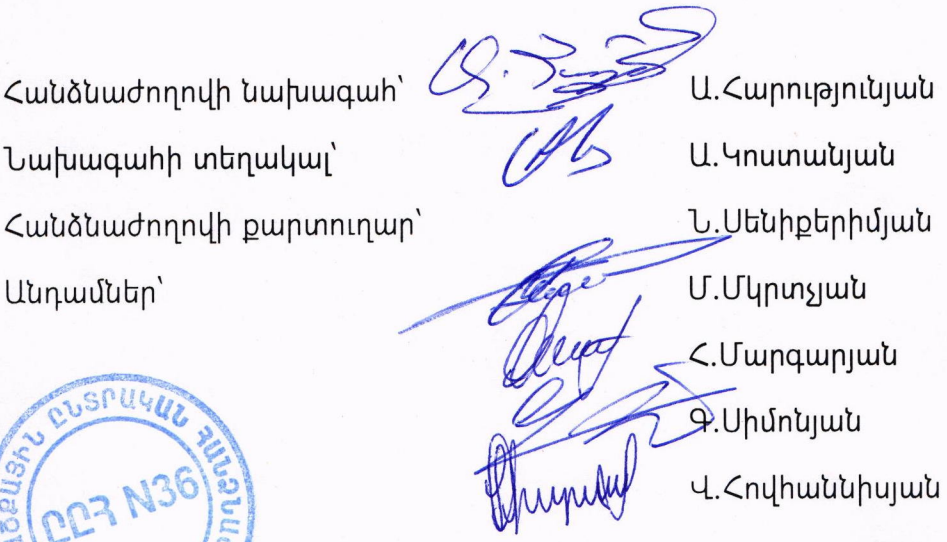 Հանձնաժողովի նախագահ՝ Ա.Հարությունյան
Նախագահի տեղակալ՝ Ա.Կոստանյան
Հանձնաժողովի քարտուղար՝ Ն.Սենիքերիմյան
Անդամներ՝ Մ.Մկրտչյան
Հ.Մարգարյան
Գ.Սիմոնյան
Վ.Հովհաննիսյան
ԸՆՏՐԱԿԱՆ
ԸԸՀ N36